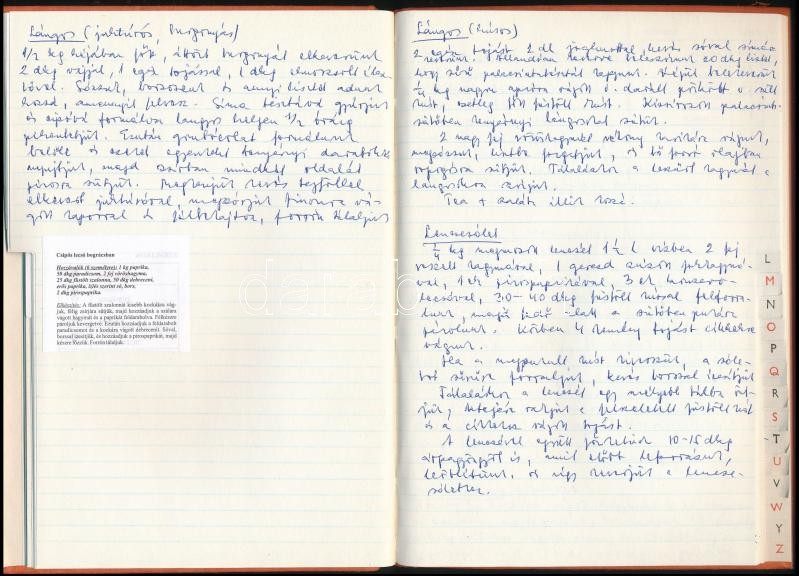 Lángos (juhtúrós, burgonyás)
1/2 kg héjában főtt, áttört burgonyát elkeverünk
2 dkg vajjal, 1 egész tojással, 1 dkg elmorzsolt élesz-
tővel. Sózzuk, borsozzuk és annyi lisztet adunk
hozzá, amennyit felvesz. Sima tésztává gyúrjuk
és cipóvá formálva langyos helyen 1/2 óráig
pihentetjük. Ezután gombócokat formálunk
belőle és ezeket egyenként tenyérnyi darabokká
nyújtjuk, majd zsírban mindkét oldalát
pirosra sütjük. Megkenjük kevés tejföllel
elkevert juhtúróval, megszórjuk finomra vá-
gott kaporral és forrón tálaljuk
Csípős lecsó bográcsban
Hozzávalók (6 személyre): 1 kg paprika,
50 dkg paradicsom, 2 fej vöröshagyma,
25 dkg füstölt szalonna, 50 dkg debreceni,
erős paprika, ízlés szerint só, bors,
2 dkg pirospaprika.
Elkészítés: A füstölt szalonnát kisebb kockákra vág-
juk, félig zsírjára sütjük, majd hozzáadjuk a szálára
vágott hagymát és a paprikát feldarabolva. Félkészre
pároljuk kevergetve. Ezután hozzáadjuk a feldarabolt
paradicsomot és a kockára vágott debrecenit. Sóval,
borssal ízesítjük, és hozzáadjuk a pirospaprikát, majd
készre főzzük. Forrón tálaljuk.
Lángos (húsos)
2 egész tojást 2 dl joghurttal, kevés sóval simára
keverünk. Állandóan keverve beleszórunk 20 dkg lisztet,
hogy sűrű palacsintatésztát kapjunk. Végül belekeverünk
1/4 kg nagyon apróra vágott v. darált pörkölt v. sült
húst, esetleg főtt füstölt húst. Kizsírozott palacsinta-
sütőben tenyérnyi lángosokat sütünk.
2 nagy fej vöröshagymát vékony karikára vágunk,
megsózzuk, lisztbe forgatjuk, és bő forró olajban
ropogósra sütjük. Tálaláskor a lesült hagymát a
lángosokra szórjuk.
Tea + saláta illik hozzá.
Lencsesólet
1/4 kg megmosott lencsét 1 1/2 l vízben 2 fej
reszelt hagymával, 1 gerezd zúzott fokhagymá-
val, 1 ek pirospaprikával, 3 ek
30-40 dkg füstölt hússal felforra-
lunk, majd fedő alatt a sütőben puhára
párolunk. Közben 4 kemény tojást cikkekre
vágunk.
Ha a megpuhult húst kivesszük, a sóle-
tet sűrűre forraljuk, kevés borssal ízesítjük
Tálaláskor a lencsét egy mélyebb tálba önt-
jük, tetejére rakjuk a felszeletelt füstölt húst
és a cikkekre vágott tojást.
A lencsével együtt főzhetünk 10-15 dkg
árpagyöngyöt is, amit előbb leforrázunk,
leöblítünk, és úgy keverjük a lencse-
sólethez.
L
M
N
O
P
Q
R
S
T
U
V
W
Y
Z